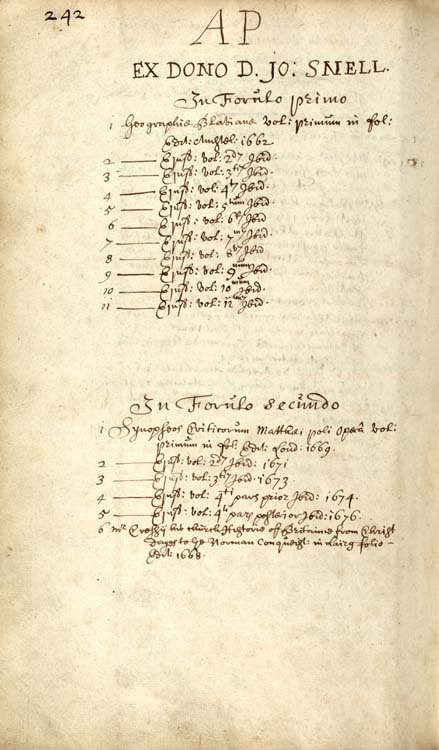 242
AP
EX DONO D. JO: SNELL.
In Forulo primo
1 Geographiæ Blavianæ vol: primum in fol:
Edit: Amstel: 1662
2 Ejusd: vol: 2dū Ibid.
3 Ejusd: vol: 3tiū Ibid.
4 Ejusd: vol: 4tū Ibid.
5 Ejusd: vol: 5tum Ibid.
6 Ejusd: vol: 6tū Ibid
7 Ejusd: vol: 7mū Ibid.
8 Ejusd: vol: 8vū Ibid
9 Ejusd: vol: 9num Ibid.
10 Ejusd: vol: 10mum Ibid.
11 Ejusd: vol: 11 Ibid.
In Forulo secundo
1 Synopseos Criticorum Matthæi poli Operâ vol:
primum in fol: Edit: Lond: 1669.
2 Ejusd: vol: 2dū Ibid: 1671
3 Ejusd: vol: 3tiū Ibid: 1673
4 Ejusd: vol: 4ti pars prior Ibid: 1674.
5 Ejusd: vol: 4ti pars posterior Ibid: 1676.
6 Mr Cressy his church Historie of Britanie from Christ
Dayes to ye Norman Conquest: in Lairg folio –
Edit: 1668.